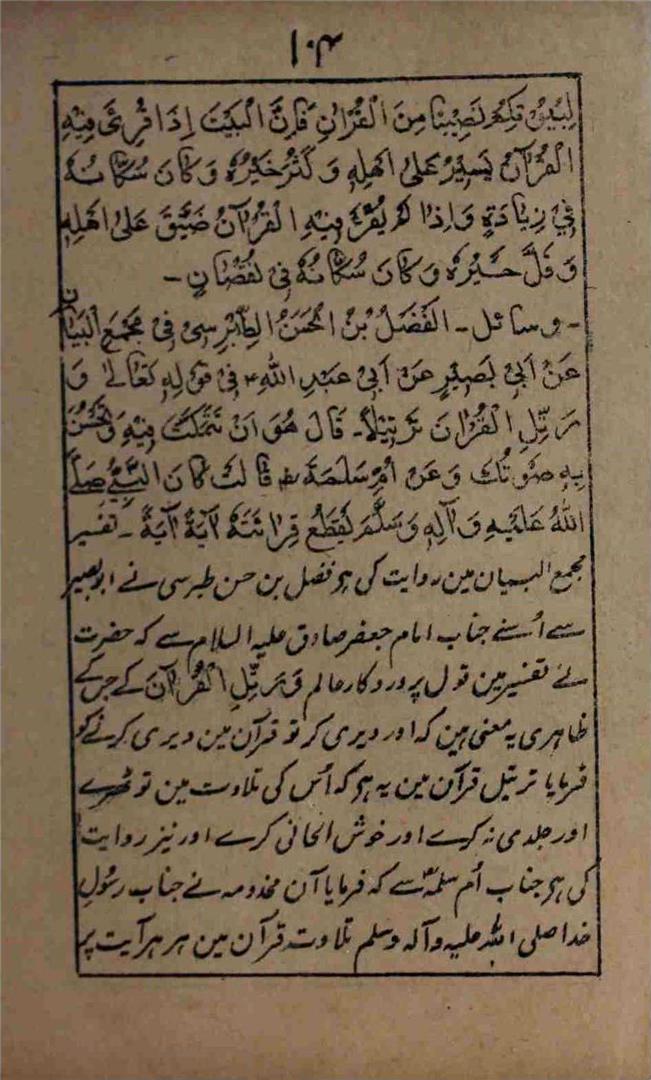 ۱۰۴
لِبُيُوتِكُم نَصِيبًا مِنَ الْقُرْاٰنِ فَاِنَّ الْبَيْتَ اِذَا قُرِئَ فِيْهِ
الْقُرْآنُ يَسِيْرُ عَلٰى اَهْلِهٖ وَكَثُرَ خَيْرُهٗ وَكَانَ سُكَّانُهٗ
فِيْ زِيَادَةٍ وَاِذَا لَمْ يُقْرَءْ فِيْهِ الْقُرْآنُ ضَيَّقَ عَلٰى اَهْلِهٖ
وَقَلَّ خَيْرُهٗ وَكَانَ سُكَّانُهٗ فِيْ نُقْصَانٍ -
- وسائل - الفَضْلُ بْنُ الْحَسَنِ الطَّبْرَسِىْ فِىْ مَجْمَعِ الْبَيَانِ
عَنْ اَبِىْ بَصِيْرٍ عَنْ اَبِىْ عَبْدِ اللّٰهِ ؑ فِىْ قَوْلِهٖ تَعَالٰى وَ
رَتِّلِ الْقُرْاٰنَ تَرْتِيْلًا - قَالَ هُوَ اَنْ تَمَكَّثَ فِيْهِ وَتُحَسِّنَ
بِهٖ صَوْتَكَ وَعَنْ اُمِّ سَلَمَةَ قَالَتْ كَانَ النَّبِيُّ صَلَّى
اللّٰهُ عَلَيْهِ وَآلِهٖ وَسَلَّمَ يُقَطِّعُ قِرَائَتَهٗ آيَةً آيَةً - تفسیر
مجمع البیان مین روایت کی ہو فضل بن حسن طبرسی نے ابو بصیر
سے اُسنے جناب امام جعفر صادق علیہ السلام سے کہ حضرت
نے تفسیر مین قول پروردگار عالم وَرَتِّلِ الْقُرْآنَ کے جسکے
ظاہری یہ معنی ہین کہ اور دیری کر تو قرآن مین دیری کرنے کو
فرمایا ترتیل قرآن مین یہ ہو کہ اُس کی تلاوت مین تو ٹھرے
اور جلدی نہ کرے اور خوش الحانی کرے اور نیز روایت
کی ہو جناب اُم سلمہؓ سے کہ فرمایا آن مخدومہ نے جناب رسولِ
خدا صلی اللہ علیہ وآلہ وسلم تلاوت قرآن مین ہر ہر آیت پر